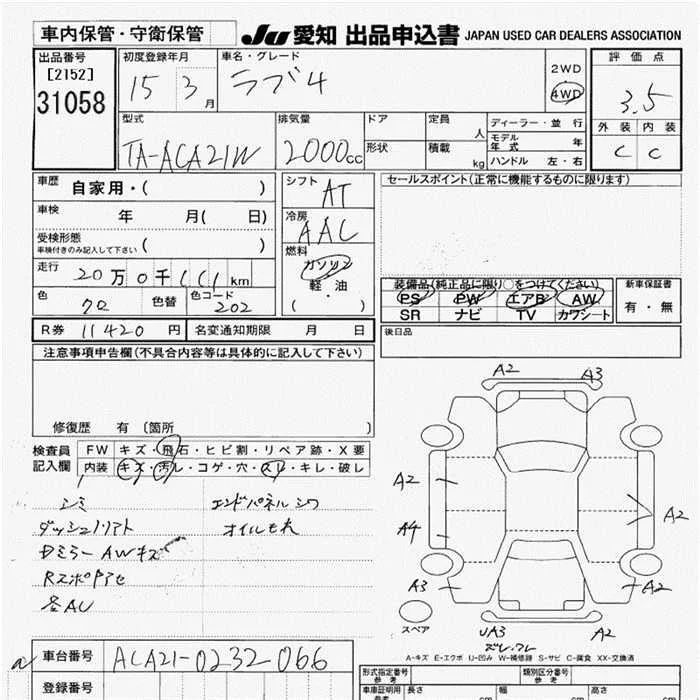 車内保管・守衛保管
JU 愛知 出品申込書 JAPAN USED CAR DEALERS ASSOCIATION
出品番号
[2152]
31058
初度登録年月
15 3月
車名・グレード
ラブ4
2WD
4WD
評価点
3.5
外装 内装
C C
型式
TA-ACA21W
排気量
2000cc
ドア
形状
定員 人
積載 kg
ディーラー・並行
モデル年式 年
ハンドル 左・右
車歴 自家用・( )
車検 年 月( 日)
受検形態
車検付きのみ記入して下さい ( )
走行 20万0千111km
色 色替 色コード 202
シフト AT
冷房 AAC
燃料
ガソリン
軽・油
( )
セールスポイント(正常に機能するものに限ります)
装備品(純正品に限り○をつけてください)
PS PW エアB AW
SR ナビ TV カワシート
新車保証書
有・無
R券 11420円 名変通知期限 月 日
後日品
注意事項申告欄(不具合内容等は具体的に記入して下さい)
修復歴 有 〔箇所 〕
検査員記入欄
FW キズ・飛石・ヒビ割・リペア跡・X要
内装 キズ・汚レ・コゲ・穴・スレ・キレ・破レ
シミ
エンドパネルシワ
オイルもれ
AWキズ
A2 A3
A2
A4
A3
A2
A2
UA3 A2
スペア
A-キズ E-エクボ U-凹み W-補修跡 S-サビ C-腐食 XX-交換済
車台番号 ACA21-0232066
登録番号
型式指定番号
参考
類別区分番号
参考
車庫証明用
参考
長さ 幅 高さ